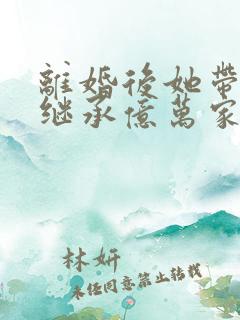 離婚後她帶
继承億萬家
林妍
未经同意禁止转载